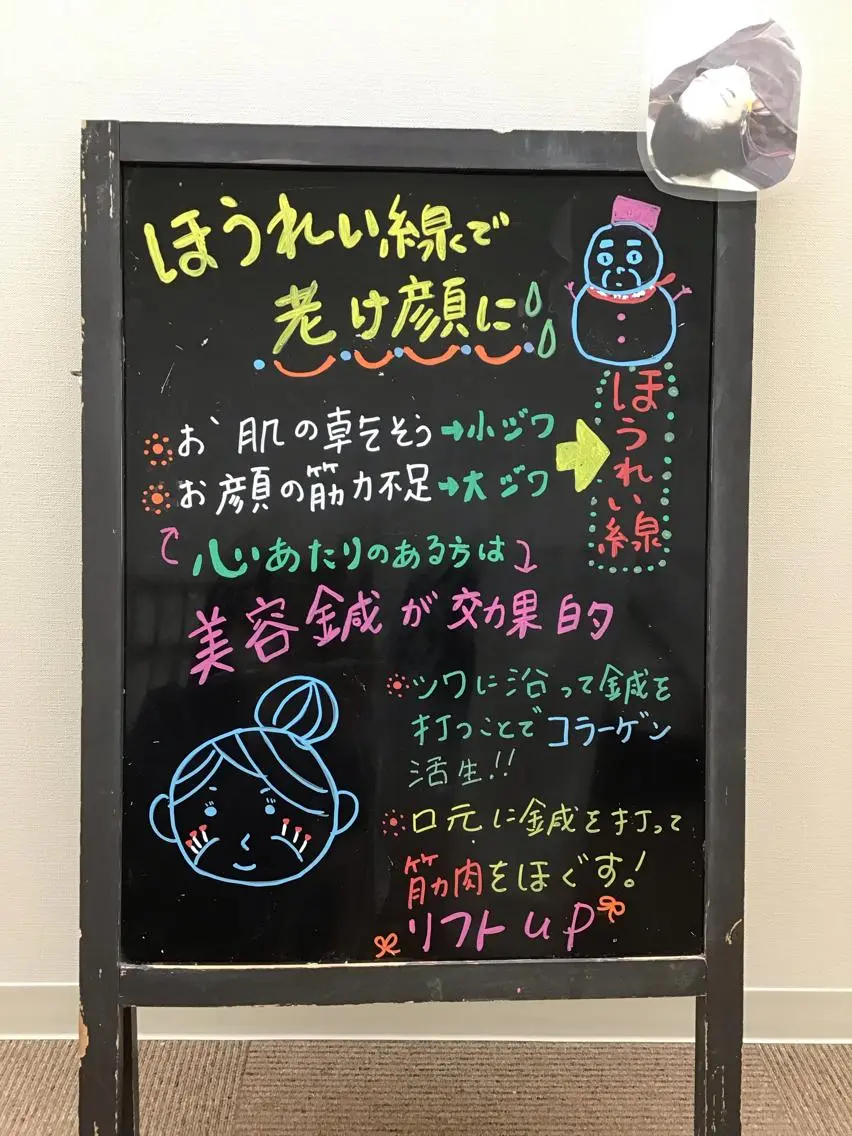 ほうれい線で
老け顔に
お肌の乾そう→小ジワ
お顔の筋力不足→大ジワ
ほうれい線
心いあたりのある方は
美容鍼が効果的
シワに沿って鍼を
打つことでコラーゲン
活生!!
口元に鍼を打って
筋肉をほぐす!
リフトup